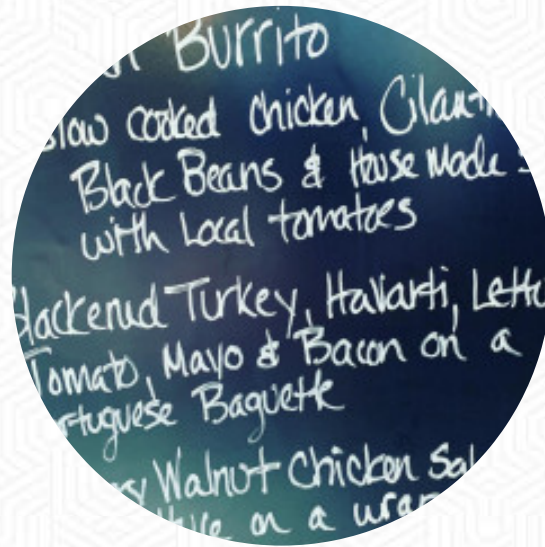 Burrito
Slow cooked chicken, Cilant
Black Beans & House Made
with Local tomatoes
Blackened Turkey, Havarti, Lettu
Tomato, Mayo & Bacon on a
rtuguese Baguette
Walnut Chicken Sal
on a wrap